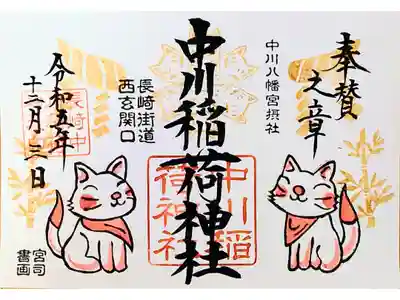 奉賛
之章
中川八幡宮摂社
中川稲荷神社
中川稲
荷神社
長崎街道
西玄関口
長崎中
令和五年
十二月三日
宮司
書画